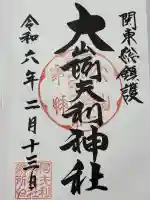 関東総鎮護
大山阿夫利神社
令和六年二月十三日